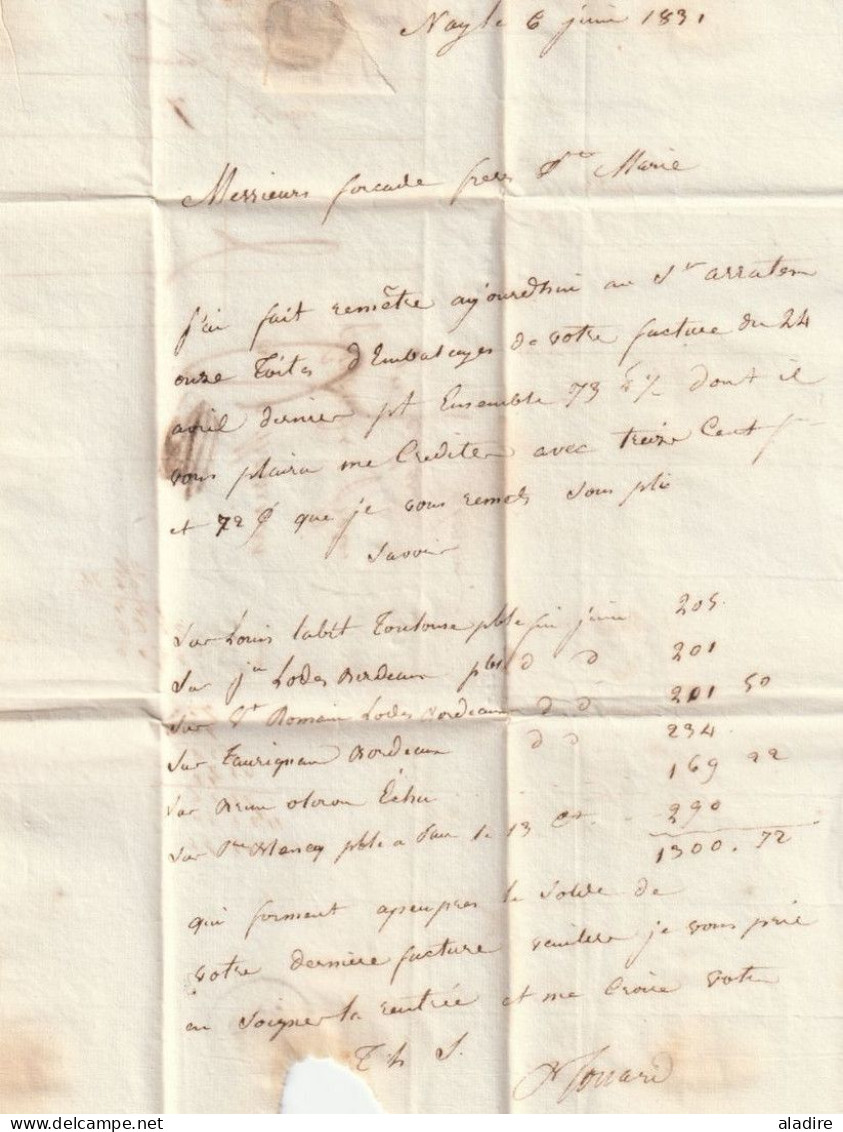 Nay le 6 juin 1831
Messieurs forcade freres Ste Marie
j'ai fait remêttre aujourdhui au Sr arraten
onze toiles d'Embalages de votre facture du 24
avril dernier pt Ensemble 73 dont il
vous plaira me Crediter avec treize Cent f
et 72 que je vous remets Sous pli
Savoir
Sur Louis labit Toulouse pble fin juin 205
Sur jn Lodes Bordeaux pble d d 201
Sur St Romain Lodes Bordeaux d d 201 50
Sur Taurignan Bordeaux d d 234
Sur oloron Échu 169 22
Sur pble a Pau le 13 ct 290
1300.72
qui forment apeupres le Solde de
votre dernière facture veuillez je vous prie
en Soigner la rentrée et me Croire votre
T h S.
aladire
www.delcampe.net